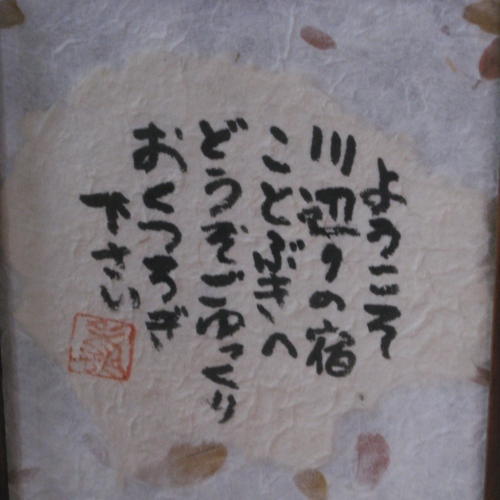 ようこそ
川辺りの宿
ことぶきへ
どうぞごゆっくり
おくつろぎ
下さい